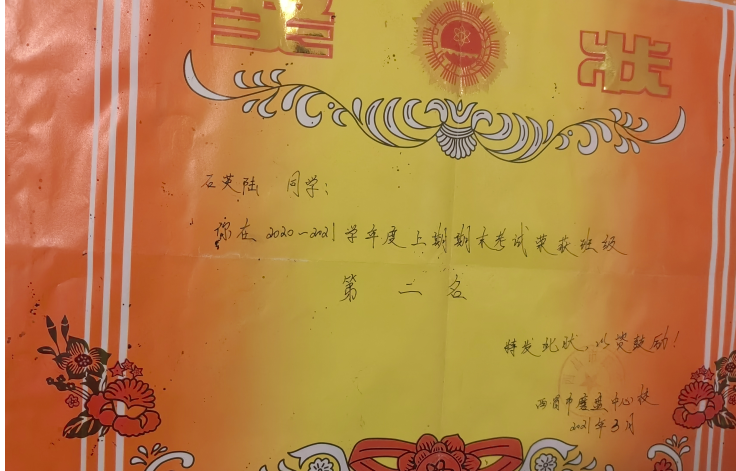 奖状
石英陆 同学:
你在2020~2021学年度上期期末考试荣获班级
第二名
特发此状,以资鼓励!
中心校
2021年3月